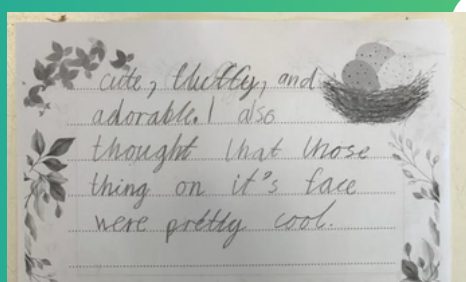 cute, fluffy, and
adorable. I also
thought that those
thing on it's face
were pretty cool.